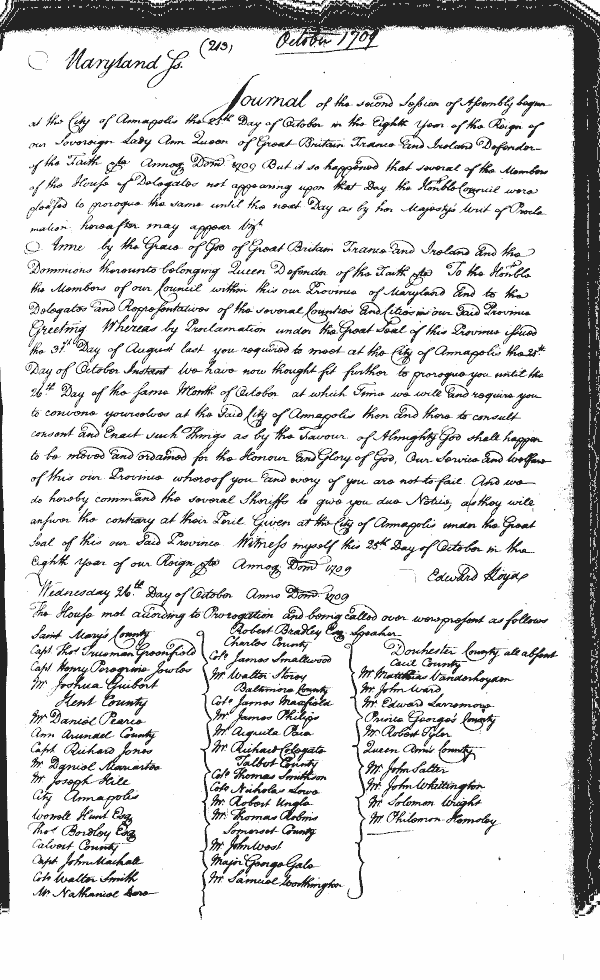 (213)
October 1709
Maryland Ss.
Journal of the second Session of Assembly begun
at the City of Annapolis the 25th Day of October in the Eighth Year of the Reign of
our Sovereign Lady Ann Queen of Great Britain France and Ireland Defender
of the Faith &ca Annoq Dom 1709 But it so happened that several of the Members
of the House of Delegates not appearing upon that Day the Honble Council were
pleased to prorogue the same until the next Day as by her Majesty's Writ of Procla
mation hereafter may appear Vizt
Anne by the Grace of God of Great Britain France and Ireland and the
Dominions thereunto belonging Queen Defender of the Faith &ca To the Honble
the Members of our Council within this our Province of Maryland and to the
Delegates and Representatives of the several Counties and Cities in our said Province
Greeting Whereas by Proclamation under the Great Seal of this Province issued
the 31st Day of August last you required to meet at the City of Annapolis the 25th
Day of October Instant We have now thought fit further to prorogue you until the
26th Day of the same Month of October at which Time we will and require you
to convene yourselves at the said City of Annapolis then and there to consult
consent and Enact such Things as by the Favour of Almighty God shall happen
to be moved and ordained for the Honour and Glory of God, Our Service and Welfare
of this our Province whereof you and every of you are not to fail And we
do hereby command the several Sheriffs to give you due Notice, as they will
answer the contrary at their Peril Given at the City of Annapolis under the Great
Seal of this our said Province Witness myself this 25th Day of October in the
Eighth Year of our Reign &ca Annoq Dom 1709
Edward Lloyd
Wednesday 26th Day of October Anno Dom 1709
The House met according to Prorogation and being called over were present as follows
Robert Bradley Esq Speaker
Saint Mary's County
Capt Thos Trueman Greenfield
Capt Henry Peregrine Jowles
Mr Joshua Guibert
Kent County
Mr Daniel Pearce
Ann Arundel County
Capt Richard Jones
Mr Daniel Mariartee
Mr Joseph Hill
City Annapolis
Wornell Hunt Esq
Thos Bordley Esq
Calvert County
Capt John Mackall
Colo Walter Smith
Mr Nathaniel Dare
Charles County
Colo James Smallwood
Mr Walter Story
Baltimore County
Colo James Maxfield
Mr James Philips
Mr Aquila Paca
Mr Richard Colegate
Talbot County
Colo Thomas Smithson
Colo Nicholas Lowe
Mr Robert Ungle
Mr Thomas Robins
Somerset County
Mr John West
Major George Gale
Mr Samuel Worthington
Dorchester County, all absent
Cecil County
Mr Matthias Vanderheyden
Mr John Ward
Mr Edward Larremore
Prince George's County
Mr Robert Tyler
Queen Ann's County
Mr John Salter
Mr John Whittington
Mr Solomon Wright
Mr Philemon Hemsley